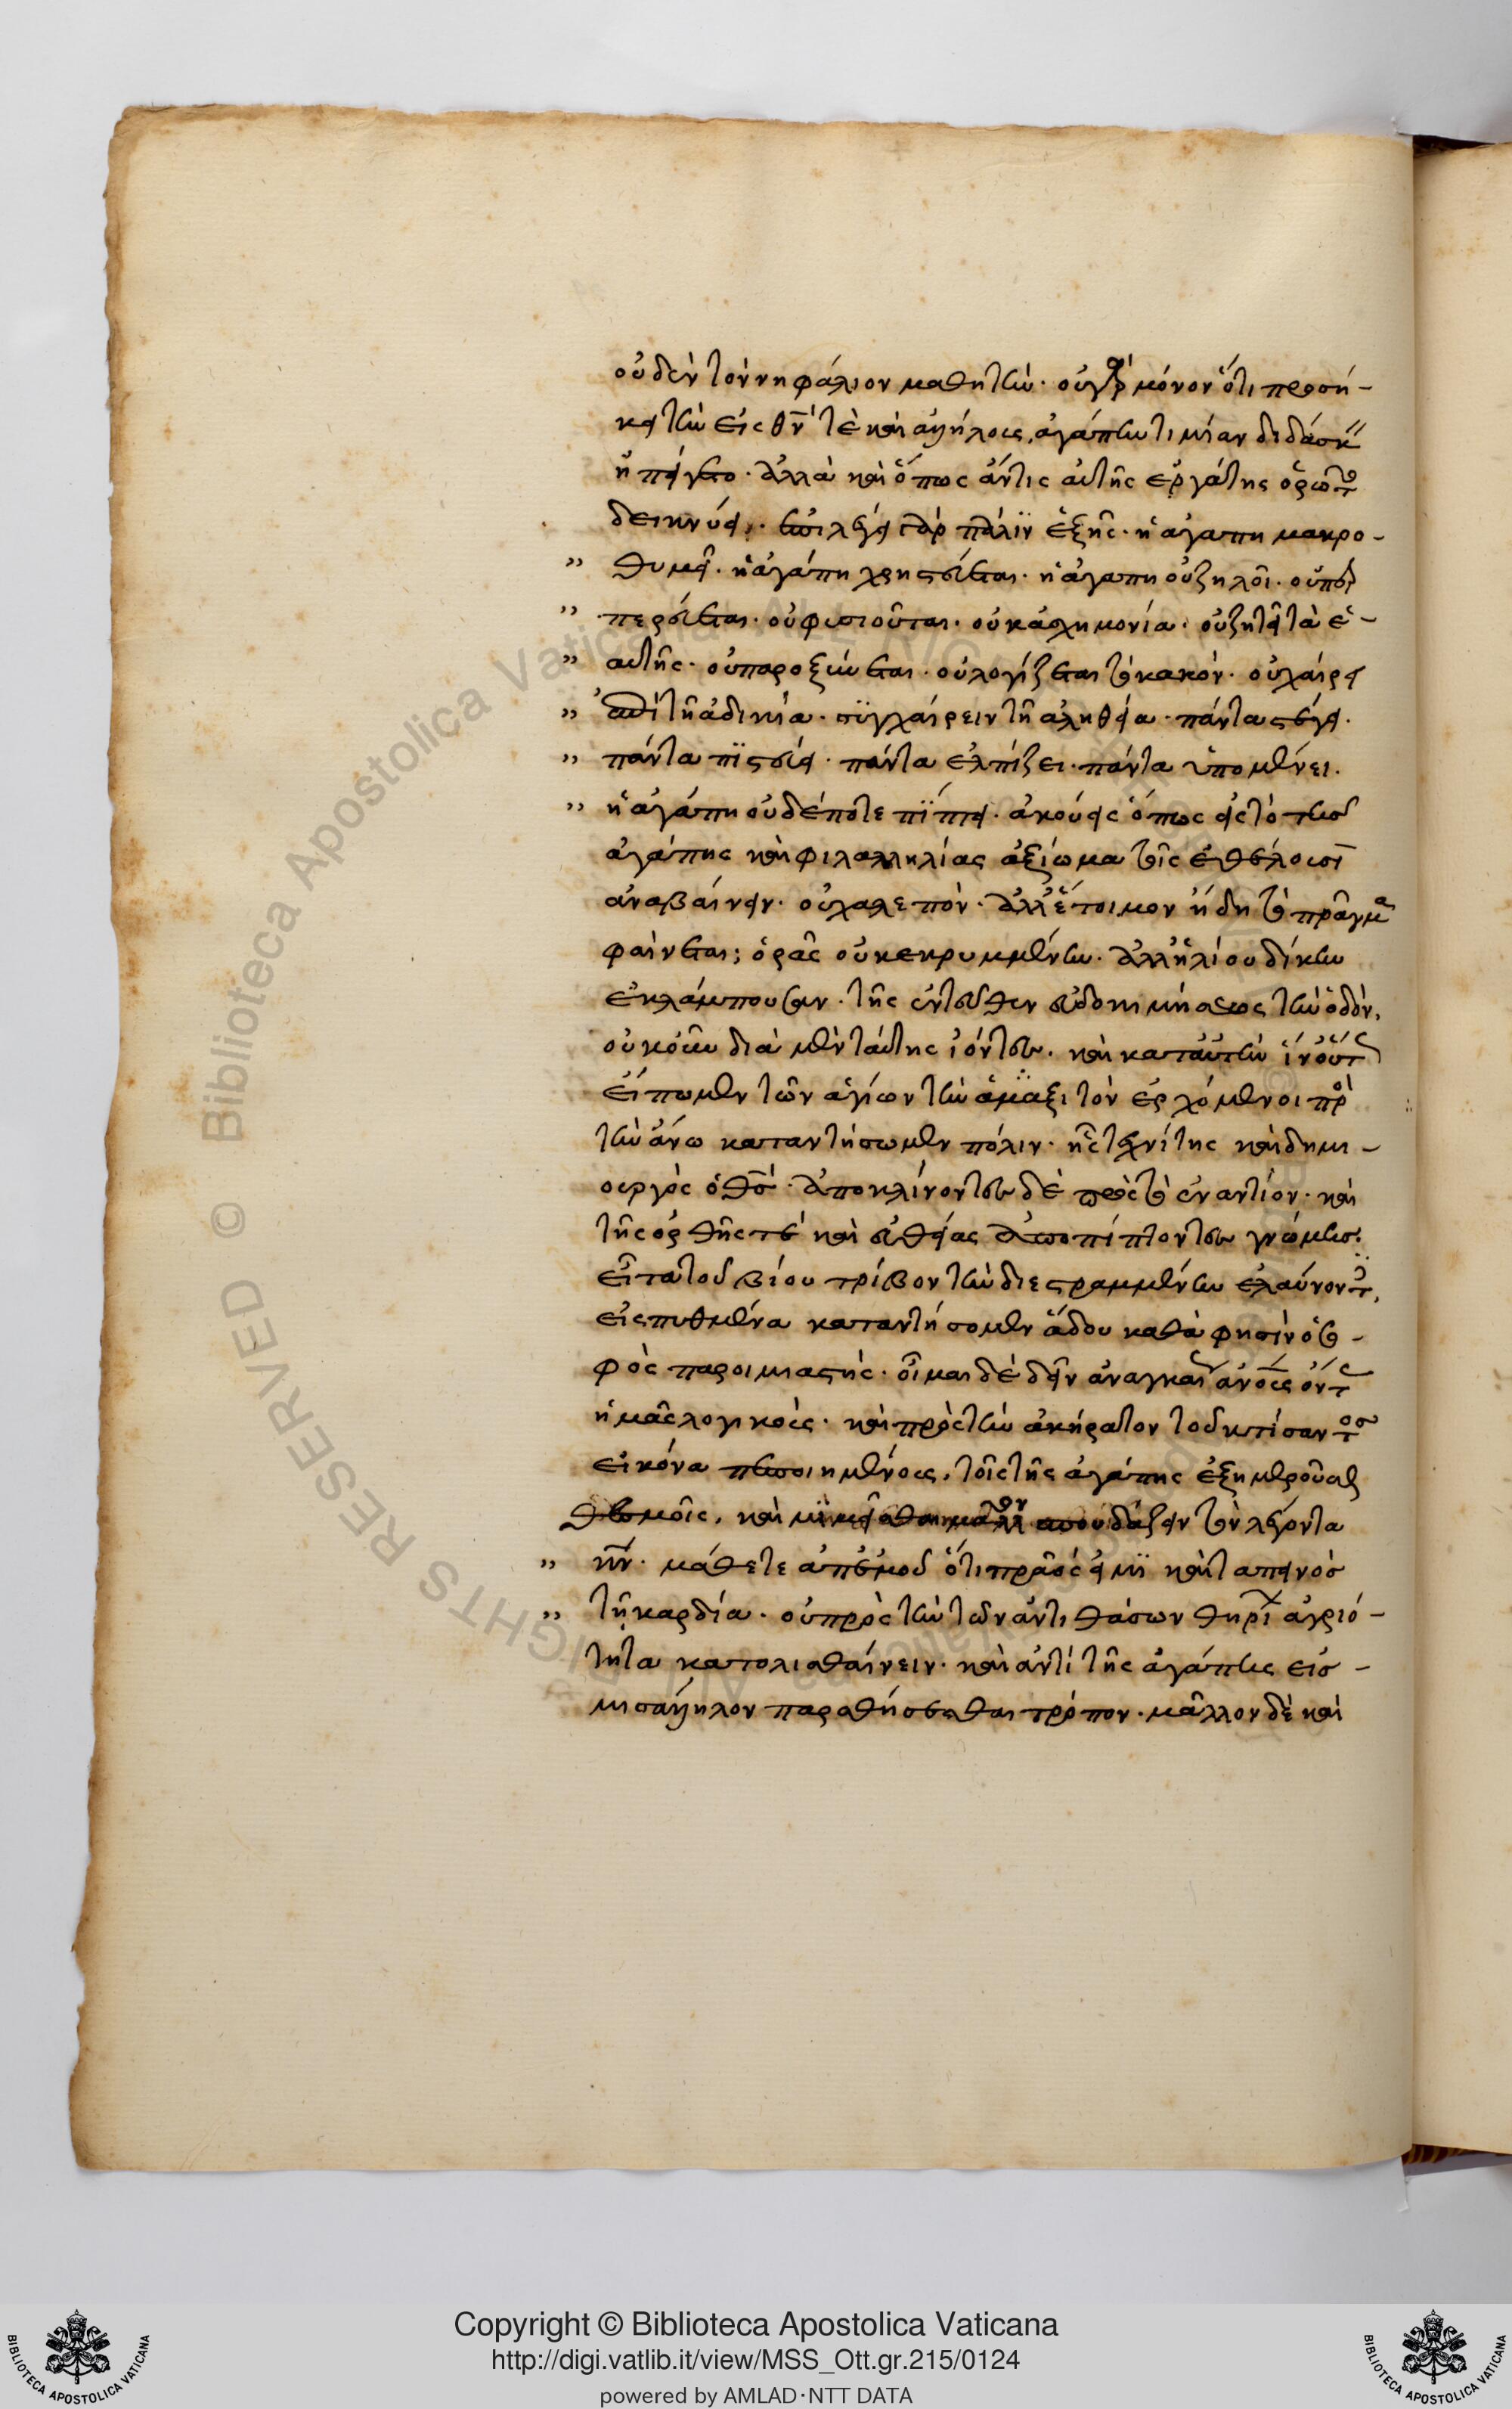 οὐδὲν τὸν νηφάλιον μαθητήν· οὐ γὰρ μόνον ὅτι προσή-
κει τὴν εἰς θν̅ τὲ καὶ ἀλλήλους ἀγάπην τιμίαν διδάσκ
ἡπείγετο· ἀλλὰ καὶ ὅπως ἄν τις αὐτῆς ἐργάτης ὁρῷτο
δεικνύει· ἐπιλέγει γὰρ πάλιν ἑξῆς· ἡ ἀγάπη μακρο-
" θυμεῖ· ἡ ἀγάπη χρηστεύεται· ἡ ἀγάπη οὐ ζηλοῖ· οὐ
" περεύεται· οὐ φυσιοῦται· οὐκ ἀσχημονεῖ· οὐ ζητεῖ τὰ ἑ-
" αυτῆς· οὐ παροξύνεται· οὐ λογίζεται τὸ κακόν· οὐ χαίρει
" ἐπὶ τῇ ἀδικία· συγχαίρειν τῇ ἀληθεία· πάντα στέγει·
" πάντα πιστεύει· πάντα ἐλπίζει· πάντα ὑπομένει·
" ἡ ἀγάπη οὐδέποτε πίπτει· ἀκούεις ὅπως εἰς τὸ τῆς
ἀγάπης καὶ φιλαλληλίας ἀξίωμα τοῖς ἐθέλουσι
ἀναβαίνειν· οὐ χαλεπὸν· ἀλλ' ἕτοιμον ἤδη τὸ πρᾶγμα
φαίνεται; ὁρᾷς οὐ κεκρυμμένην· ἀλλ' ἡλίου δίκην
ἐκλάμπουσαν· τῆς ἐντεῦθεν εὐδοκιμήσεως τὴν ὁδόν,
οὐκοῦν διὰ μὲν ταύτης ἰόντες· καὶ κατ' αὐτὴν
εἴπωμεν τῶν ἁγίων τὴν ἁμαξιτὸν ἐρχόμενοι πρὸ
τὴν ἄνω καταντήσωμεν πόλιν· ἧς τεχνίτης καὶ δημι-
ουργὸς ὁ θσ̅· ἀποκλίνοντες δὲ πρὸς τὸ ἐναντίον· καὶ
τῆς ὀρθῆς τὲ καὶ εὐθείας ἀποπίπτοντες γνώμης·
εἶτα τοῦ βίου τρίβον τὴν διεστραμμένην ἐλαύνοντ,
εἰς πυθμένα καταντήσομεν ἅδου καθά φησὶν ὁ σο-
φὸς παροιμιαστής· οἶμαι δὲ δεῖν ἀναγκαί ἀνο̅υς ὄντ
ἡμᾶς λογικοὺς· καὶ πρὸς τὴν ἀκήρατον τοῦ κτίσαντος
εἰκόνα πεποιημένους, τοῖς τῆς ἀγάπης ἐξημεροῦσθ
θεσμοῖς, καὶ μιμεῖσθαι μᾶλλον σπουδάζειν τὸν λέγοντα
" νῦν· μάθετε ἀπ' ἐμοῦ ὅτι πρᾶός εἰμι καὶ ταπεινὸσ
" τῇ καρδία· οὐ πρὸς τὴν τῶν ἀντιθάσων θηρί ἀγριό-
τητα κατολισθαίνειν· καὶ ἀντὶ τῆς ἀγάπης εἰσ-
μισάλληλον παρωθήσεσθαι τρόπον· μᾶλλον δὲ καὶ
Biblioteca Apostolica Vaticana ALL RIGHTS RESERVED ©
Copyright © Biblioteca Apostolica Vaticana
http://digi.vatlib.it/view/MSS_Ott.gr.215/0124
powered by AMLAD·NTT DATA
BIBLIOTECA APOSTOLICA VATICANA
BIBLIOTECA APOSTOLICA VATICANA